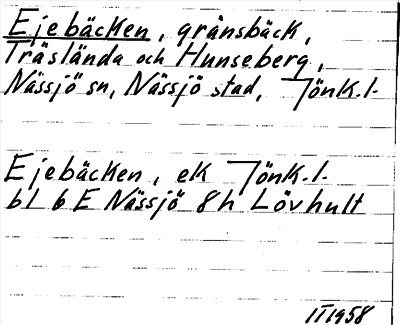 Ejebäcken, gränsbäck,
Träslända och Hunseberg,
Nässjö sn, Nässjö stad, Jönk.l.
Ejebäcken, ek Jönk.l.
bl 6 E Nässjö 8h Lövhult
II 1958